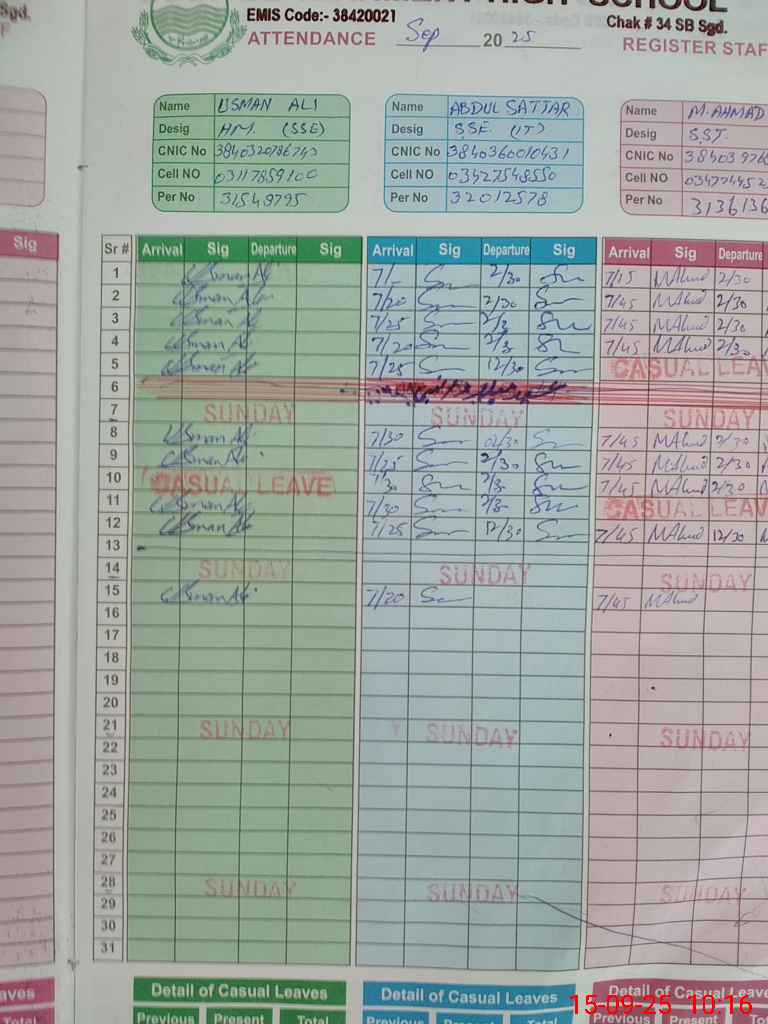 Sgd.
HIGH SCHOOL
EMIS Code:- 38420021
Chak # 34 SB Sgd.
ATTENDANCE Sep 2025
REGISTER STAF
Name USMAN ALI
Desig HM. (SSE)
CNIC No
Cell NO 03117859100
Per No 31548795
Name ABDUL SATTAR
Desig SSE (IT)
CNIC No 3840360010431
Cell NO 03427548550
Per No 32012578
Name M.AHMAD
Desig SST.
CNIC No
Cell NO
Per No 3136136
Sig
Sr # Arrival Sig Departure Sig Arrival Sig Departure Sig Arrival Sig Departure
1 Usman Ali 7/ 2/30 7/15 MAhmd 2/30
2 Usman Ali 7/20 2/30 7/45 MAhmd 2/30
3 Usman Ali 7/25 2/3 7/45 MAhmd 2/30
4 Usman Ali 7/20 2/3 7/45 MAhmd 2/30
5 Usman Ali 7/25 12/30 CASUAL LEAV
6
7 SUNDAY SUNDAY SUNDAY
8 Usman Ali 7/30 02/30 7/45 MAhmd 2/30
9 Usman Ali 7/25 2/30 7/45 MAhmd 2/30
10 CASUAL LEAVE 7/30 2/3 7/45 MAhmd 2/30
11 Usman Ali 7/30 2/3 CASUAL LEAV
12 Usman Ali 7/25 12/30 7/45 MAhmd 12/30
13
14 SUNDAY SUNDAY SUNDAY
15 Usman Ali 7/20 7/45 MAhmd
16
17
18
19
20
21 SUNDAY SUNDAY SUNDAY
22
23
24
25
26
27
28 SUNDAY SUNDAY SUNDAY
29
30
31
aves
Total
Detail of Casual Leaves Detail of Casual Leaves Detail of Casual Leaves
Previous Present Total Previous Present Total Previous
15-09-25 10:16